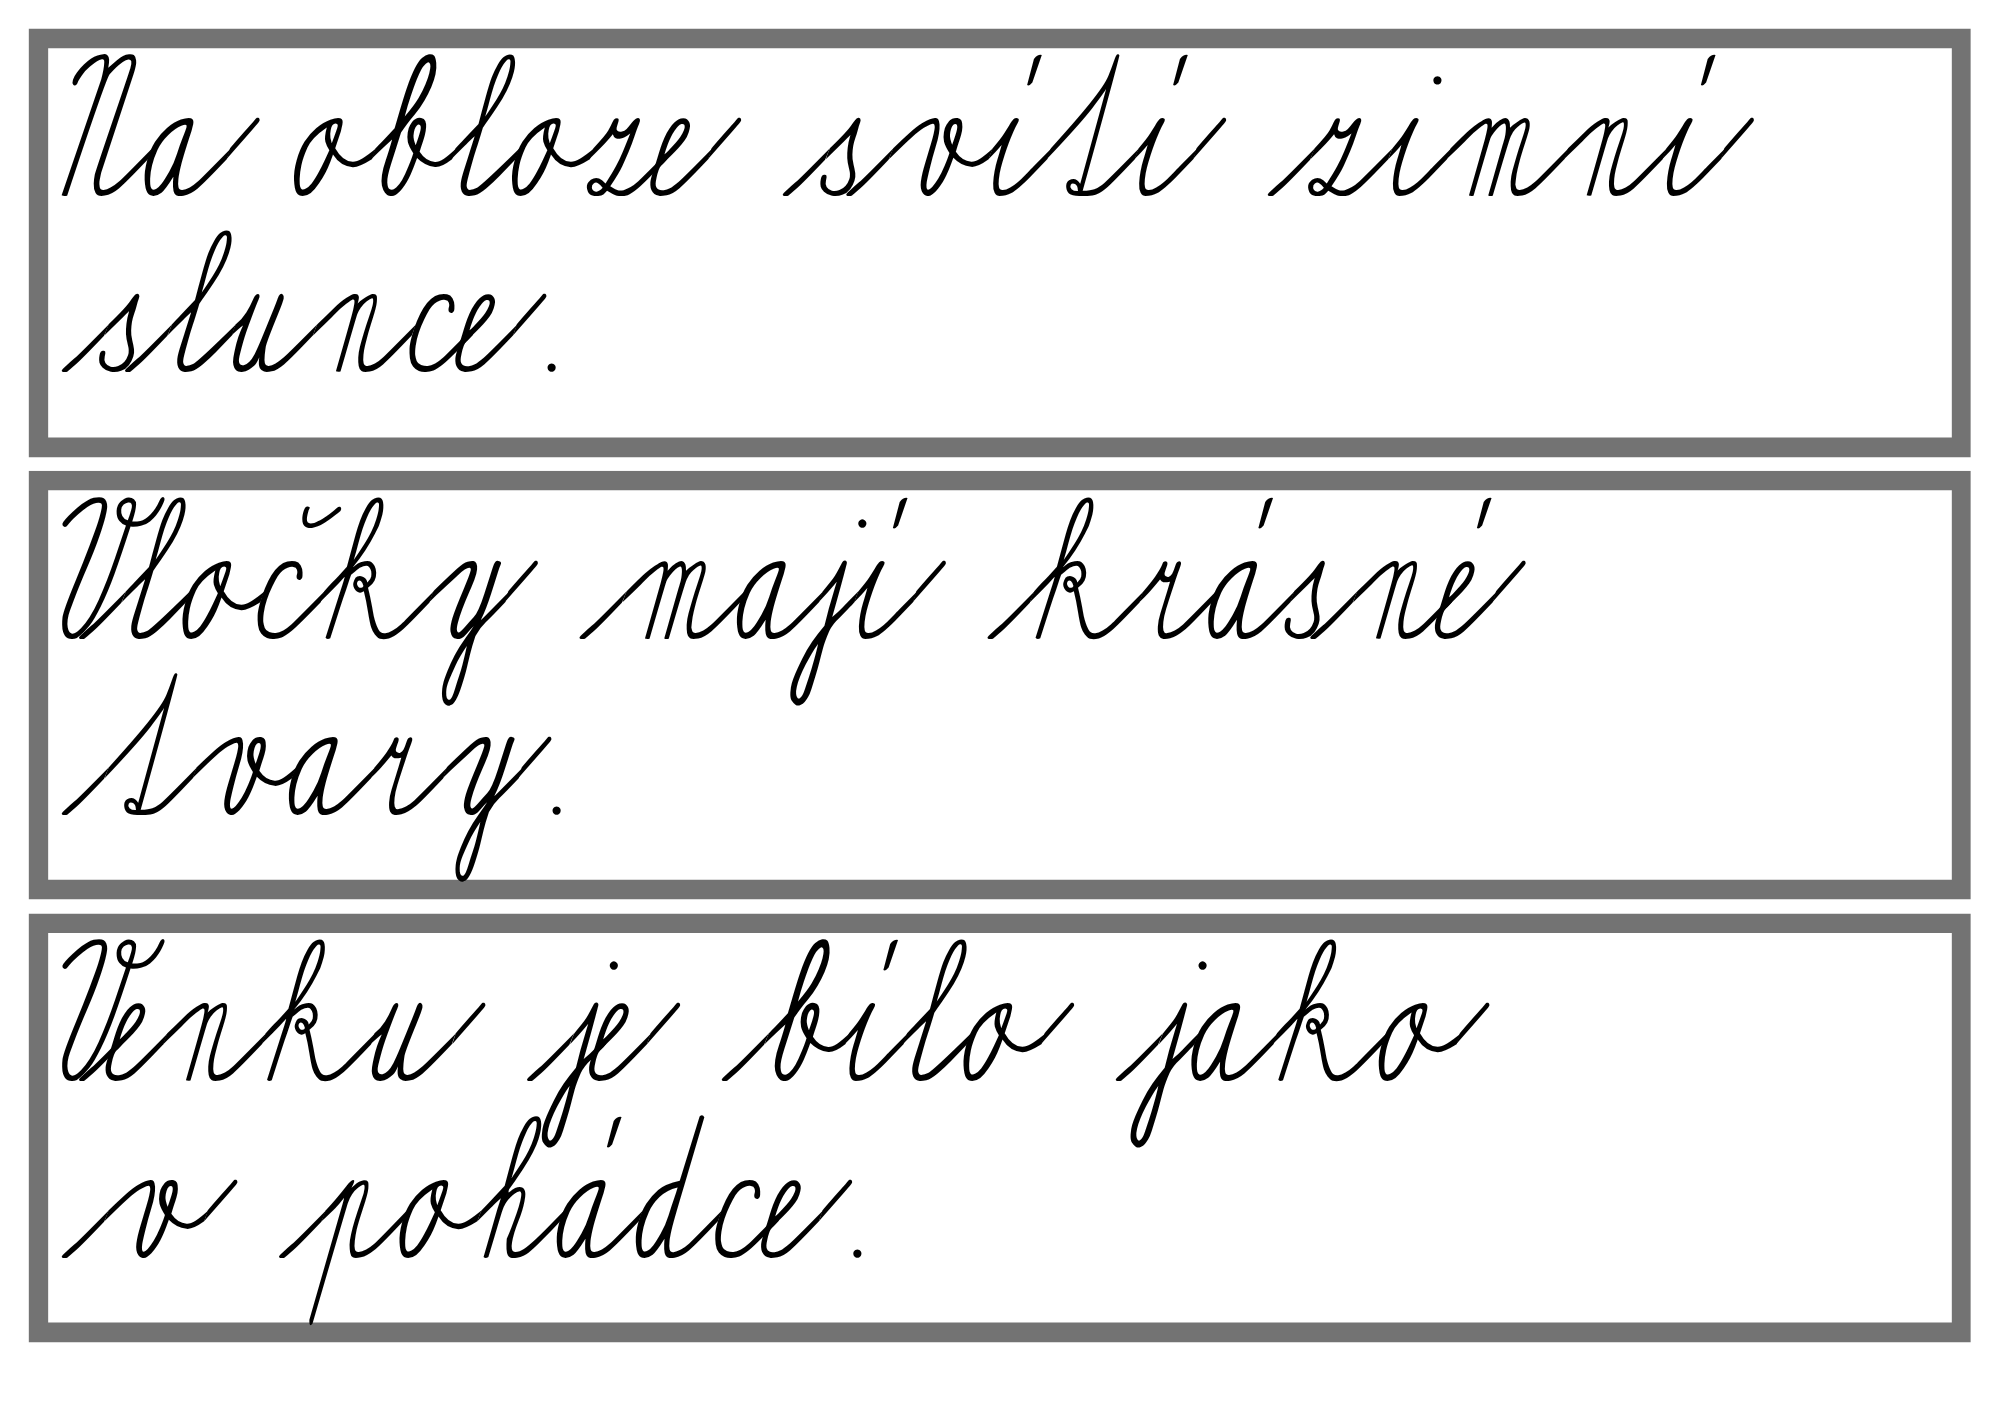 Na obloze svítí zimní
slunce.
Vločky mají krásné
tvary.
Venku je bílo jako
v pohádce.